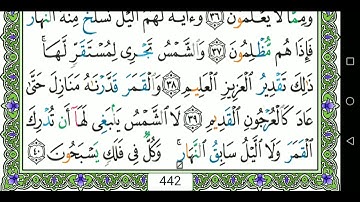 وَمِمَّا لَا يَعۡلَمُونَ ٣٦ وَءَايَةٞ لَّهُمُ ٱلَّيۡلُ نَسۡلَخُ مِنۡهُ ٱلنَّهَارَ
فَإِذَا هُم مُّظۡلِمُونَ ٣٧ وَٱلشَّمۡسُ تَجۡرِي لِمُسۡتَقَرّٖ لَّهَاۚ
ذَٰلِكَ تَقۡدِيرُ ٱلۡعَزِيزِ ٱلۡعَلِيمِ ٣٨ وَٱلۡقَمَرَ قَدَّرۡنَٰهُ مَنَازِلَ حَتَّىٰ
عَادَ كَٱلۡعُرۡجُونِ ٱلۡقَدِيمِ ٣٩ لَا ٱلشَّمۡسُ يَنۢبَغِي لَهَآ أَن تُدۡرِكَ
ٱلۡقَمَرَ وَلَا ٱلَّيۡلُ سَابِقُ ٱلنَّهَارِۚ وَكُلّٞ فِي فَلَكٖ يَسۡبَحُونَ ٤٠
442